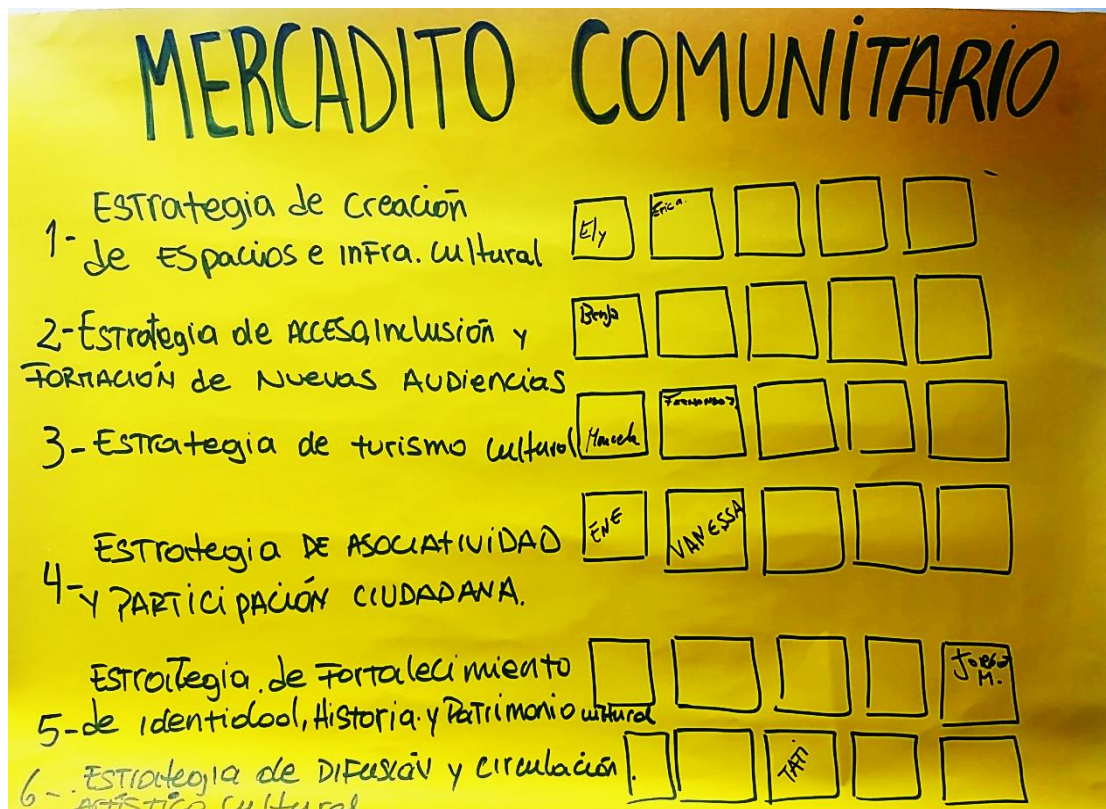 MERCADITO COMUNITARIO
Estrategia de creación
1- de Espacios e infra. cultural
Ely Erica.
2- Estrategia de ACCESO, Inclusión y
FORMACIÓN de Nuevas AUDiencias
Benja
3- Estrategia de turismo cultural
Marcela FERNANDO J.
ESTrategia DE ASOCIATIVIDAD
4- y PARTICIPACIÓN CIUDADANA.
ENE VANESSA
ESTrategia de Fortalecimiento
5- de identidad, Historia y Patrimonio cultural
JORGE
M.
6- Estrategia de DIFUSIÓN y circulación.
TATI
ARTÍSTICO cultural